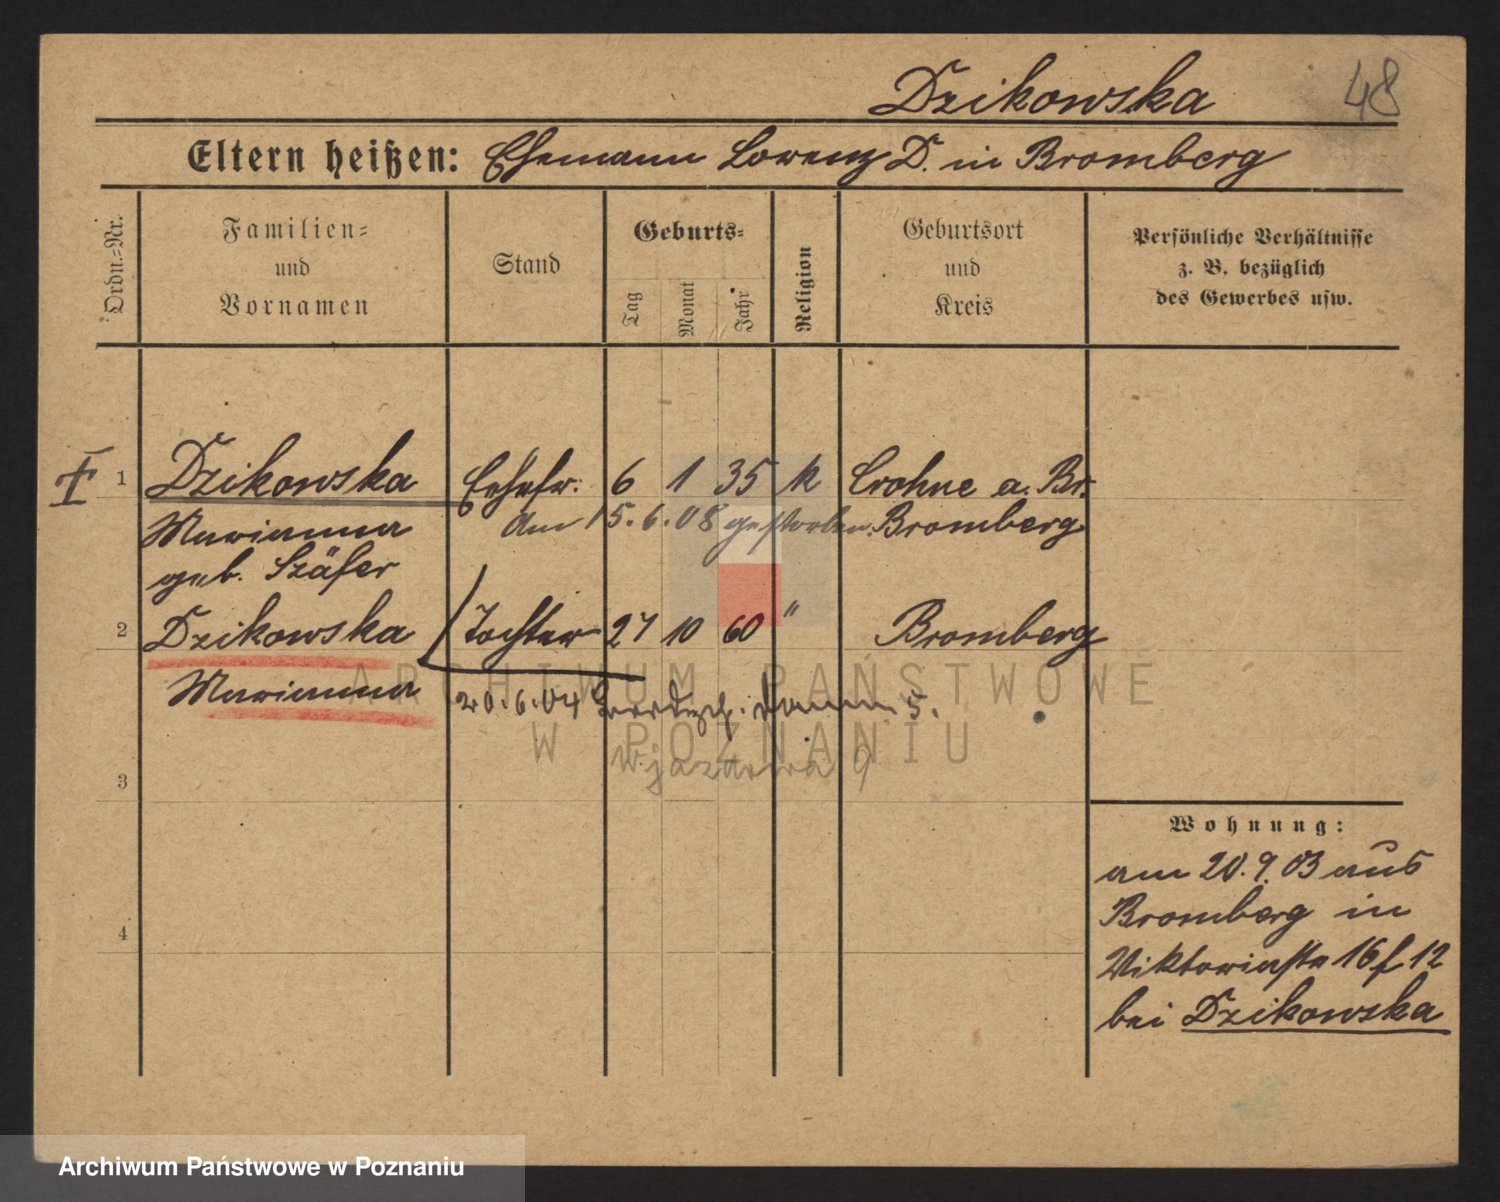 Dzikowska 48
Eltern heißen: Ehemann Lorenz D. in Bromberg
Ordn.=Nr.
Familien=
und
Vornamen
Stand
Geburts=
Tag
Monat
Jahr
Religion
Geburtsort
und
Kreis
Persönliche Verhältnisse
z. B. bezüglich
des Gewerbes usw.
1 Dzikowska Ehefr. 6 1 35 k Crohne a. Br.
Am 15.6.08 gestorben. Bromberg
Marianna
geb. Szäfer
2 Dzikowska Tochter 27 10 60 " Bromberg
Marianna
20.6.04 Damm 5.
3
4
Wohnung:
am 20.9.03 aus
Bromberg in
Viktoriastr 16 f 12
bei Dzikowska
ARCHIWUM PAŃSTWOWE
W POZNANIU
Archiwum Państwowe w Poznaniu